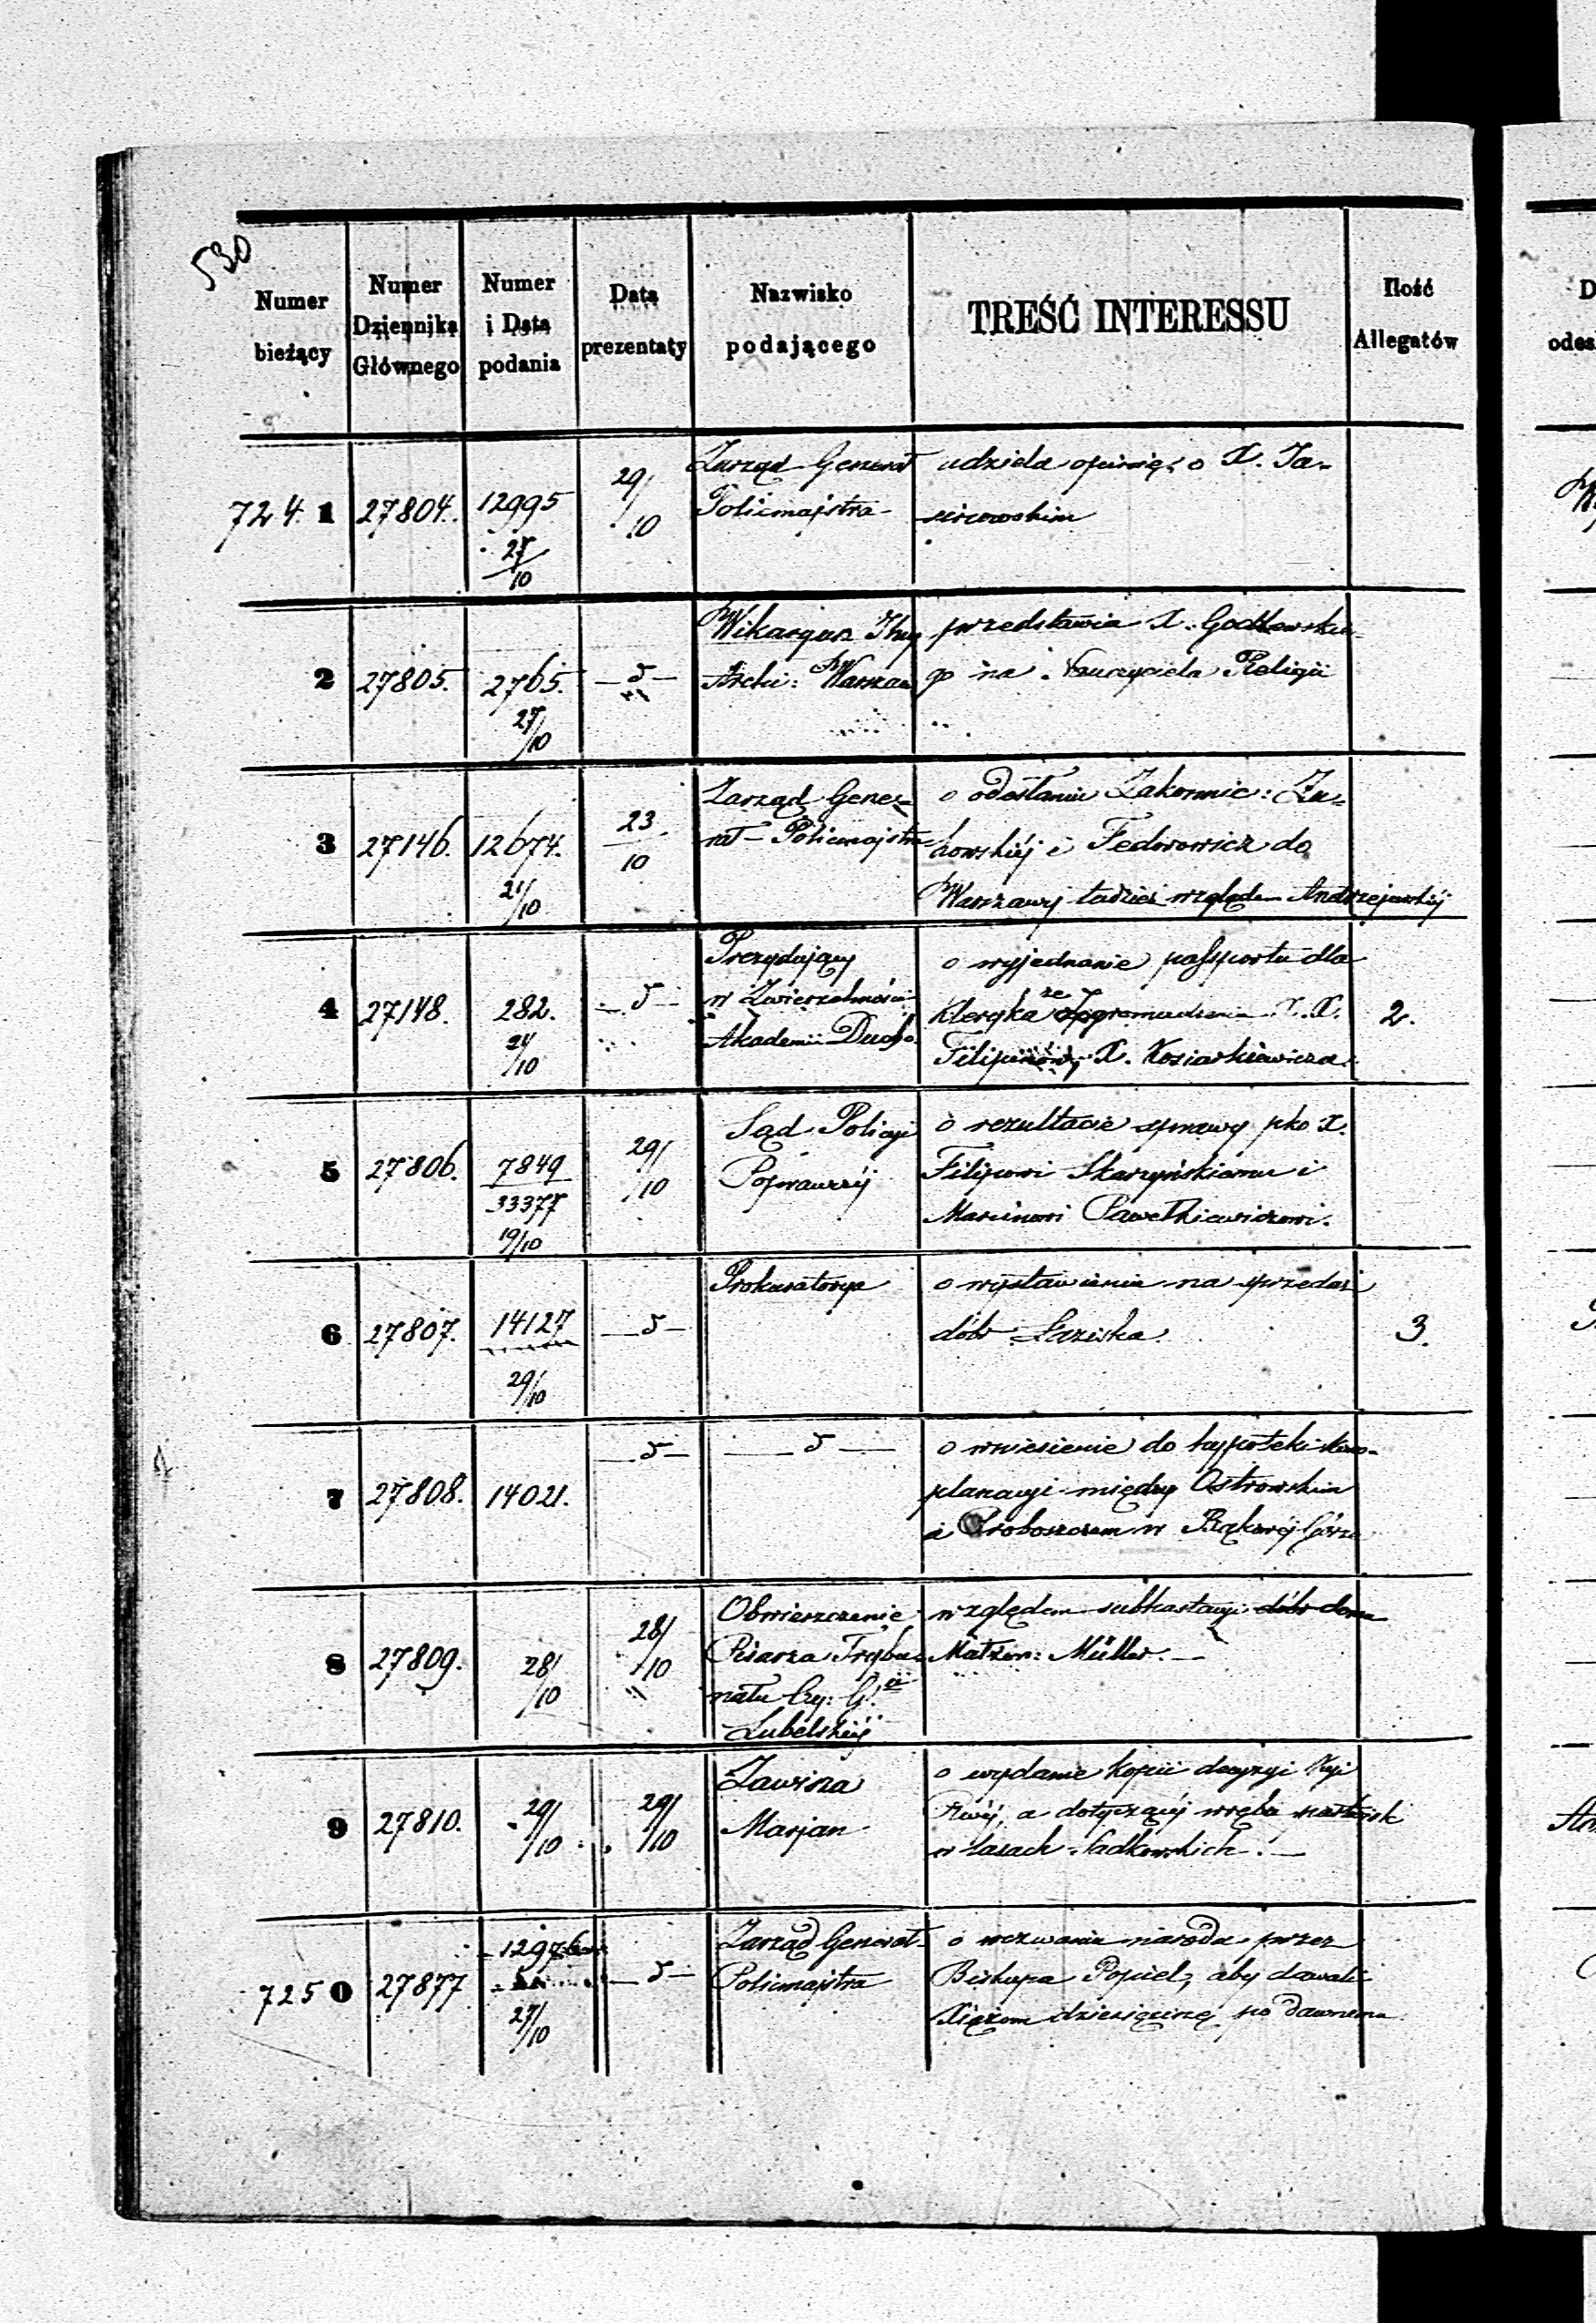 530
Numer bieżący
Numer Dziennika Głównego
Numer i Data podania
Data prezentaty
Nazwisko podającego
TREŚĆ INTERESSU
Ilość Allegatów
D
odes
724.1 27804. 12995 27/10 29/10
Zarząd Generał
Policmajstra
udziela opinię o X. Ja-
2 27805. 2765. 27/10 — d —
Wikaryusz
Archi: Warszaw
przedstawia X. Godlewskie-
go na Nauczyciela Religii
3 27146. 12674. 21/10 23/10
Zarząd Gene-
rał-Policmajstra
o odesłaniu Zakonnic: Żu-
kowskiéj i Fedorowicz do
Warszawy tudzież względem Andrzejewskiéj
4 27148. 282. 24/10 — d —
Prezydujący
w Zwierzchności
Akademii Ducho.
o wyjednanie passportu dla
Kleryka ze Zgromadzenia X.X.
Filipinów, X. Kosiarkiewicza.
2.
5 27806. 7849 33377 19/10 29/10
Sąd Policyi
Poprawczéj
o rezultacie sprawy pko X.
Filipowi Skarzyńskiemu i
Marcinowi Pawełkiewiczowi.
6 27807. 14127 29/10 — d —
Prokuratorya
o wystawieniu na sprzedaż
dóbr Łaziska.
3.
7 27808. 14021. — d — — d —
o wniesienie do hypoteki kom-
planacyi między Ostrowskim
a Proboszczem w Bąkowéj Górze
8 27809. 28/10 28/10
Obwieszczenie
Pisarza Trybu-
nału Cy: G.
Lubelskiéj
względem subhastacyi dóbr
Małżon: Müller. —
9 27810. 29/10 29/10
Zawisza
Marjan
o wydanie kopii decyzyi Kyi
Rwéj, a dotyczącéj wrębu
w lasach Sadkowskich. —
7250 27877 12976 27/10 — d —
Zarząd Generał-
Policmajstra
o wezwaniu narodu przez
Biskupa Popiel, aby dawali
Xiężom dziesięcinę po dawnemu